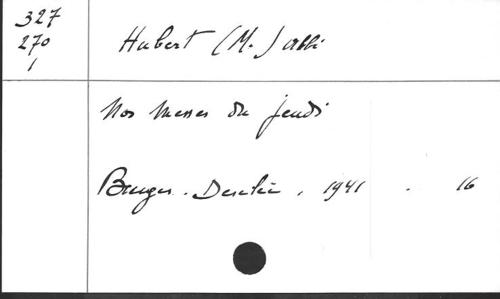 327
270
1
Hubert (M.) abbé
Nos messes du jeudi
Bruges. Desclée, 1941. 16